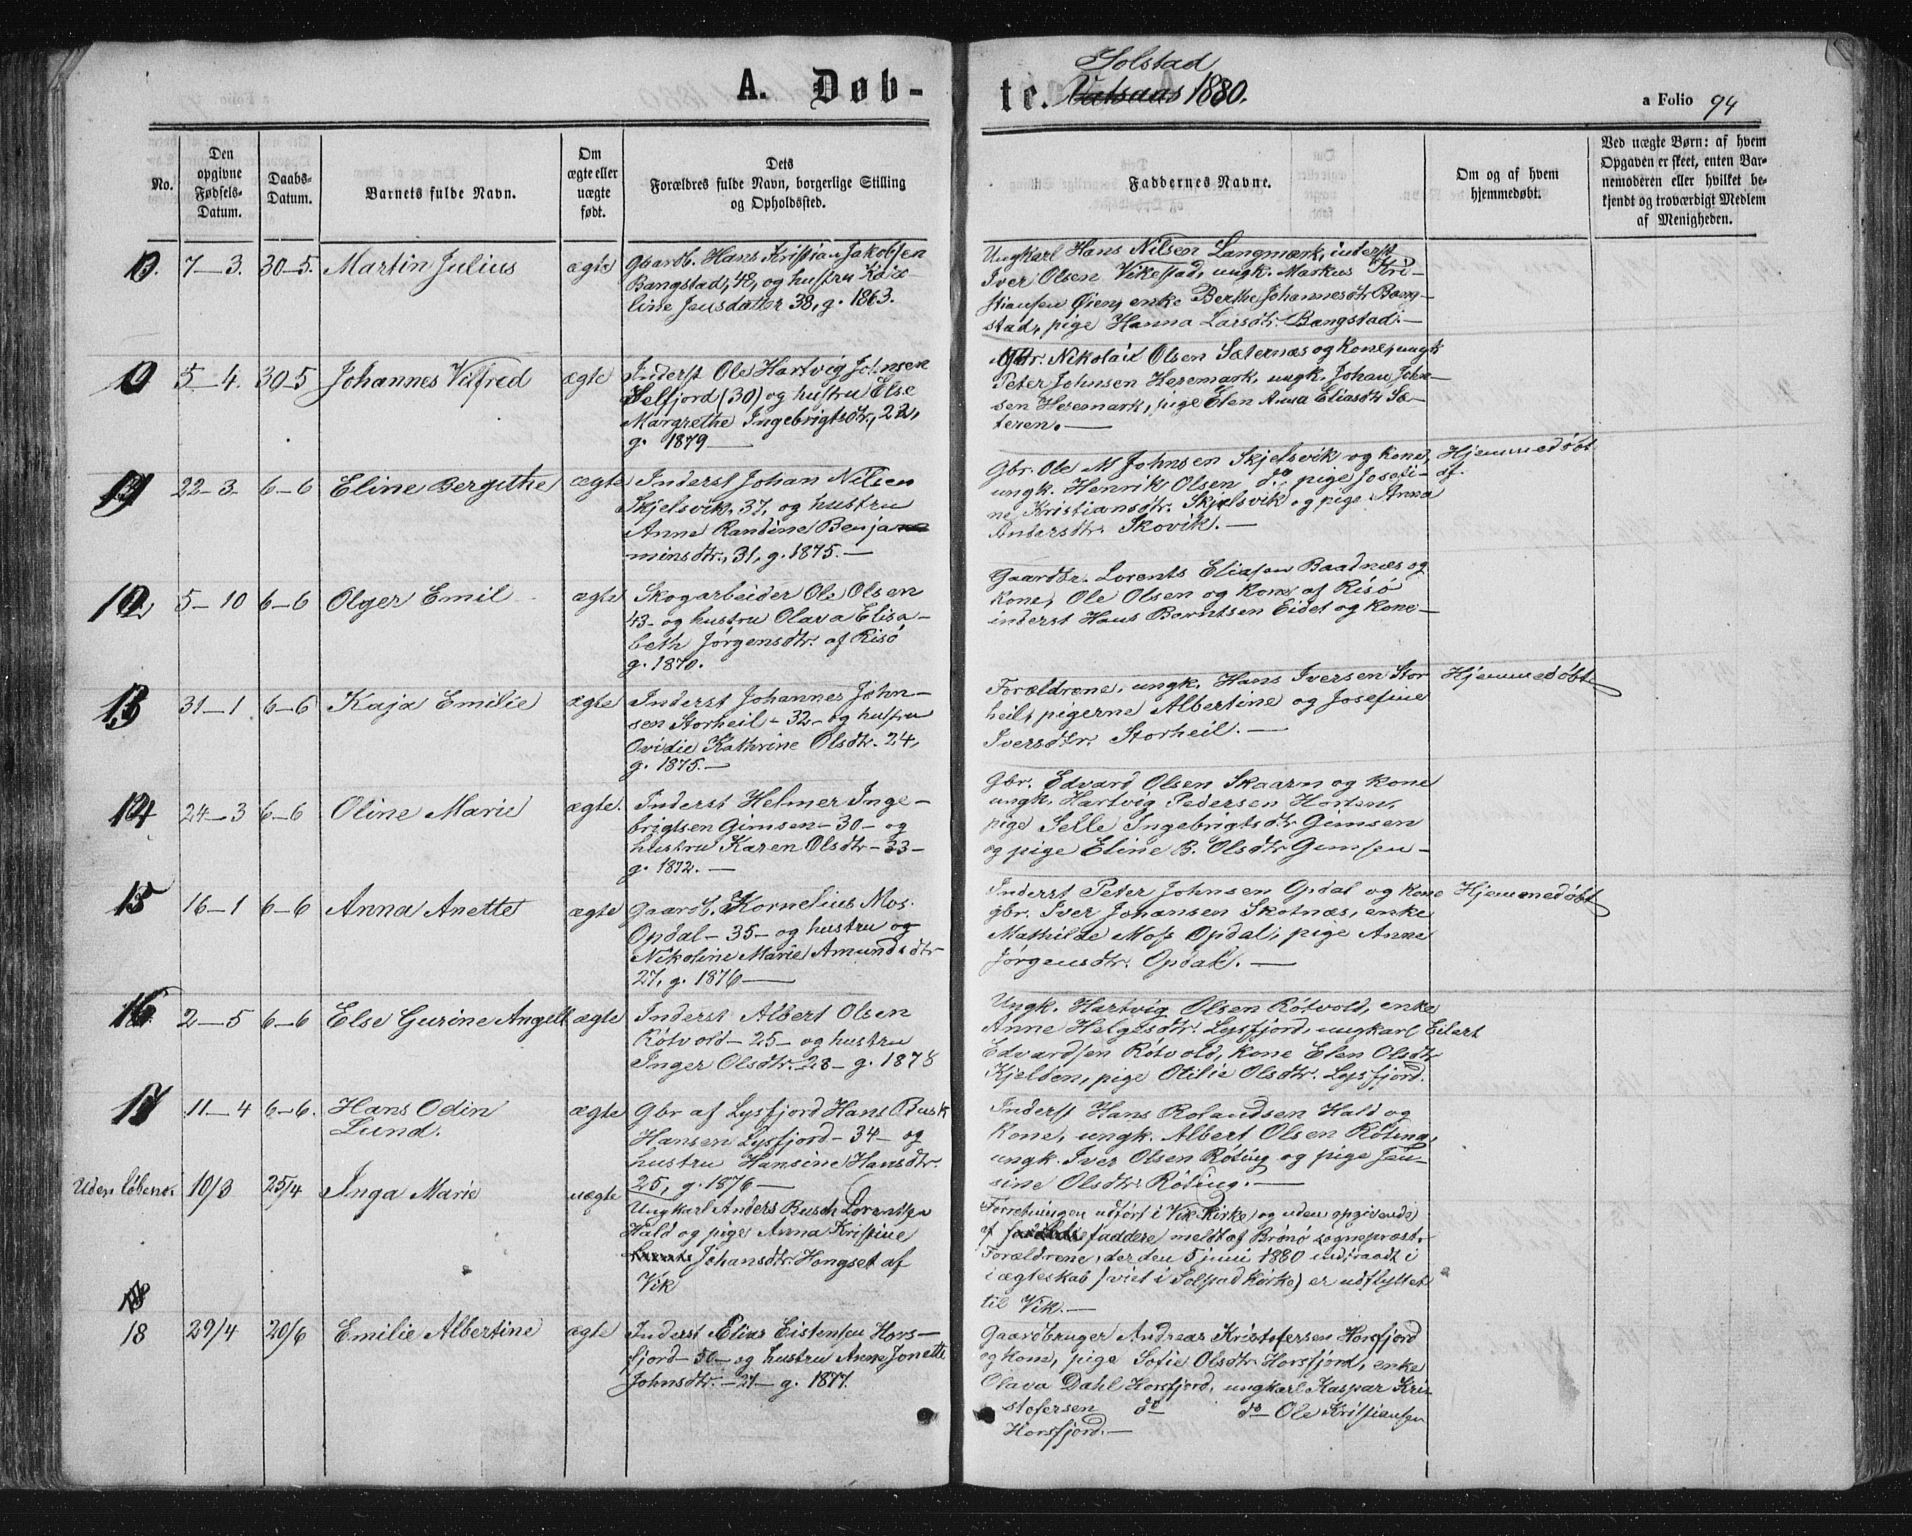 A. Døb-
te. Solstad
Vatsaas 1880.
a Folio 94
No.
Den
opgivne
Fødsels-
Datum.
Daabs-
Datum.
Barnets fulde Navn.
Om
ægte eller
uægte
født.
Dets
Forældres fulde Navn, borgerlige Stilling
og Opholdssted.
Faddernes Navne.
Om og af hvem
hjemmedøbt.
Ved uægte Børn: af hvem
Opgaven er skeet, enten Bar-
nemoderen eller hvilket be-
kjendt og troværdigt Medlem
af Menigheden.
7–3. 30–5. Martin Julius ægte
Gaardb. Hans Kristian Jakobsen
Bangstad, 42, og hustru
line Jensdatter 38, g. 1863.
Ungkarl Hans Nilsen Langmark, inderst
Iver Olsen Vikestad, ungk. Markus Kri-
stiansen Øien, enke Berthe Johannesdtr Bang-
stad, pige Hanna Larsdtr. Bangstad.–
5–4. 30–5 Johannes Vilfred ægte
Inderst Ole Hartvig Johnsen
Selfjord (30) og hustru Else
Margrethe Ingebrigtsdtr, 22,
g. 1879 –
Gbr. Nikolai Olsen Sæternæs og kone, ungk
Peter Johnsen Heremark, ungk. Johan John-
sen Heremark, pige Elen Anna Eliasdtr Sæ-
teren.–
22–3. 6–6 Eline Bergithe ægte
Inderst Johan Nilsen
Skjelsvik, 37, og hustru
Anne Randine Benja
minsdtr., 31, g. 1875.–
Gbr. Ole M Johnsen Skjelsvik og kone,
ungk. Henrik Olsen do, pige Josefi-
ne Kristiansdtr. Skjelsvik og pige Anna
Andersdtr. Skovik.–
Hjemmedøbt
af.
12 5–10 6–6 Olger Emil ægte
Skogarbeider Ole Olsen
43– og hustru Olava Elisa-
beth Jørgensdtr. af Risø
g. 1870.
Gaardbr. Lorents Eliasen Baadnæs og
kone, Ole Olsen og kone af Risø
inderst Hans Berntsen Eidet og kone–
13 31–1 6–6 Kaja Emilie ægte
Inderst Johannes John-
sen Storheil – 32 – og hustru
Ovidie Kathrine Olsdtr. 24,
g. 1875.–
Forældrene, ungk. Hans Iversen Stor
heil, pigerne Albertine og Josefine
Iversdtr. Storheil.–
Hjemmedøbt
14 24–3 6–6 Oline Marie ægte.
Inderst Helmer Inge-
brigtsen Gimsen – 30 – og
hustru Karen Olsdtr – 33 –
g. 1872.–
Gbr. Edvard Olsen Skaarn og kone
ungk. Hartvig Pedersen Horten,
pige Selle Ingebrigtsdtr Gimsen
og pige Eline B. Olsdtr Gimsen–
15 16–1 6–6 Anna Anette ægte
Gaardb. Kornelius Mos.
Opdal – 35 – og hustru og
Nikoline Marie Amundsdtr
27, g. 1876 –
Inderst Peter Johnsen Opdal og kone
gbr. Iver Johansen Skotnæs, enke
Mathilde Moss Opdal, pige Anne
Jørgensdtr. Opdal.–
Hjemmedøbt
16 2–5 6–6 Else Gurine Angell ægte
Inderst Albert Olsen
Røtvold – 25 – og hustru
Inger Olsdtr. – 28 – g. 1878
Ungk. Hartvig Olsen Røtvold, enke
Anne Helgesdtr. Lysfjord, ungkarl Eilert
Edvardsen Røtvold, kone Elen Olsdtr
Kjelden, pige Otilie Olsdtr. Lysfjord.
17 11–4 6–6. Hans Odin
Lund. ægte
Gbr af Lysfjord Hans Busk
Hansen Lysfjord – 34 – og
hustru Hansine Hansdtr.
25, g. 1876 –
Inderst Hans Rolandsen Hald og
kone, ungk. Albert Olsen Røting,
ungk. Iver Olsen Røting og pige Jen-
sine Olsdtr. Røting.–
Uden løbeno. 10/3 25/4 Inga Marie uægte
Ungkarl Anders Busch Lorentsen
Hald og pige Anna Kristine
Johansdtr. Hongset af
Vik
Forretningen udført i Vik Kirke, og uden opgivende
af faddere meldt af Brønø sogneprest.
Forældrene, der den 5 juni 1880 indtraadt i
i ægteskab (viet i Solstad Kirke) er udflyttet
til Vik.–
18
18 29/4 20/6 Emilie Albertine ægte
Inderst Elias Eistensen Hors-
fjord – 50 – og hustru Anne Jonette
Johnsdtr. – 21 – g. 1877.
Gaardbruger Andreas Kristofersen Horsfjord
og kone, pige Sofie Olsdtr Horsfjord, enke
Olava Dahl Horsfjord, ungkarl Kaspar Kri-
stofersen do do Ole Kristiansen
Horsfjord.–